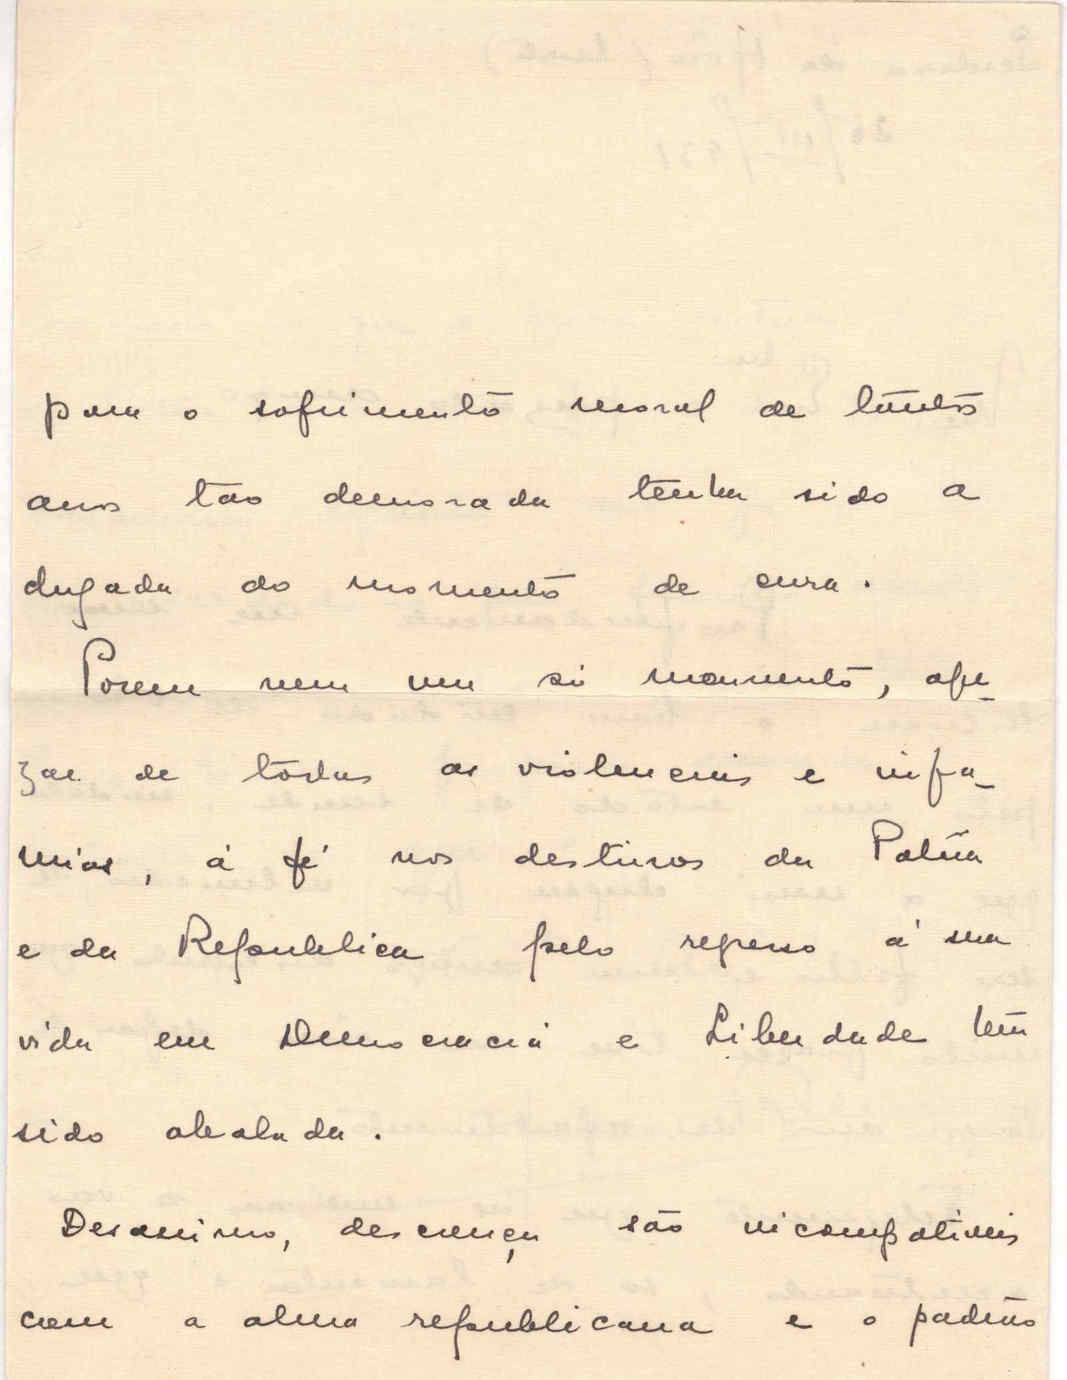 para o sofrimento moral de tantos
anos tão demorada tenha sido a
chegada do momento de cura.
Porem nem um só momento, ape-
zar de tôdas as violencias e infa-
mias, á fé nos destinos da Patria
e da Republica pelo regresso á sua
vida em Democracia e Liberdade tem
sido abalada.
Desanimo, descrença são incompativeis
com a alma republicana e o padrão